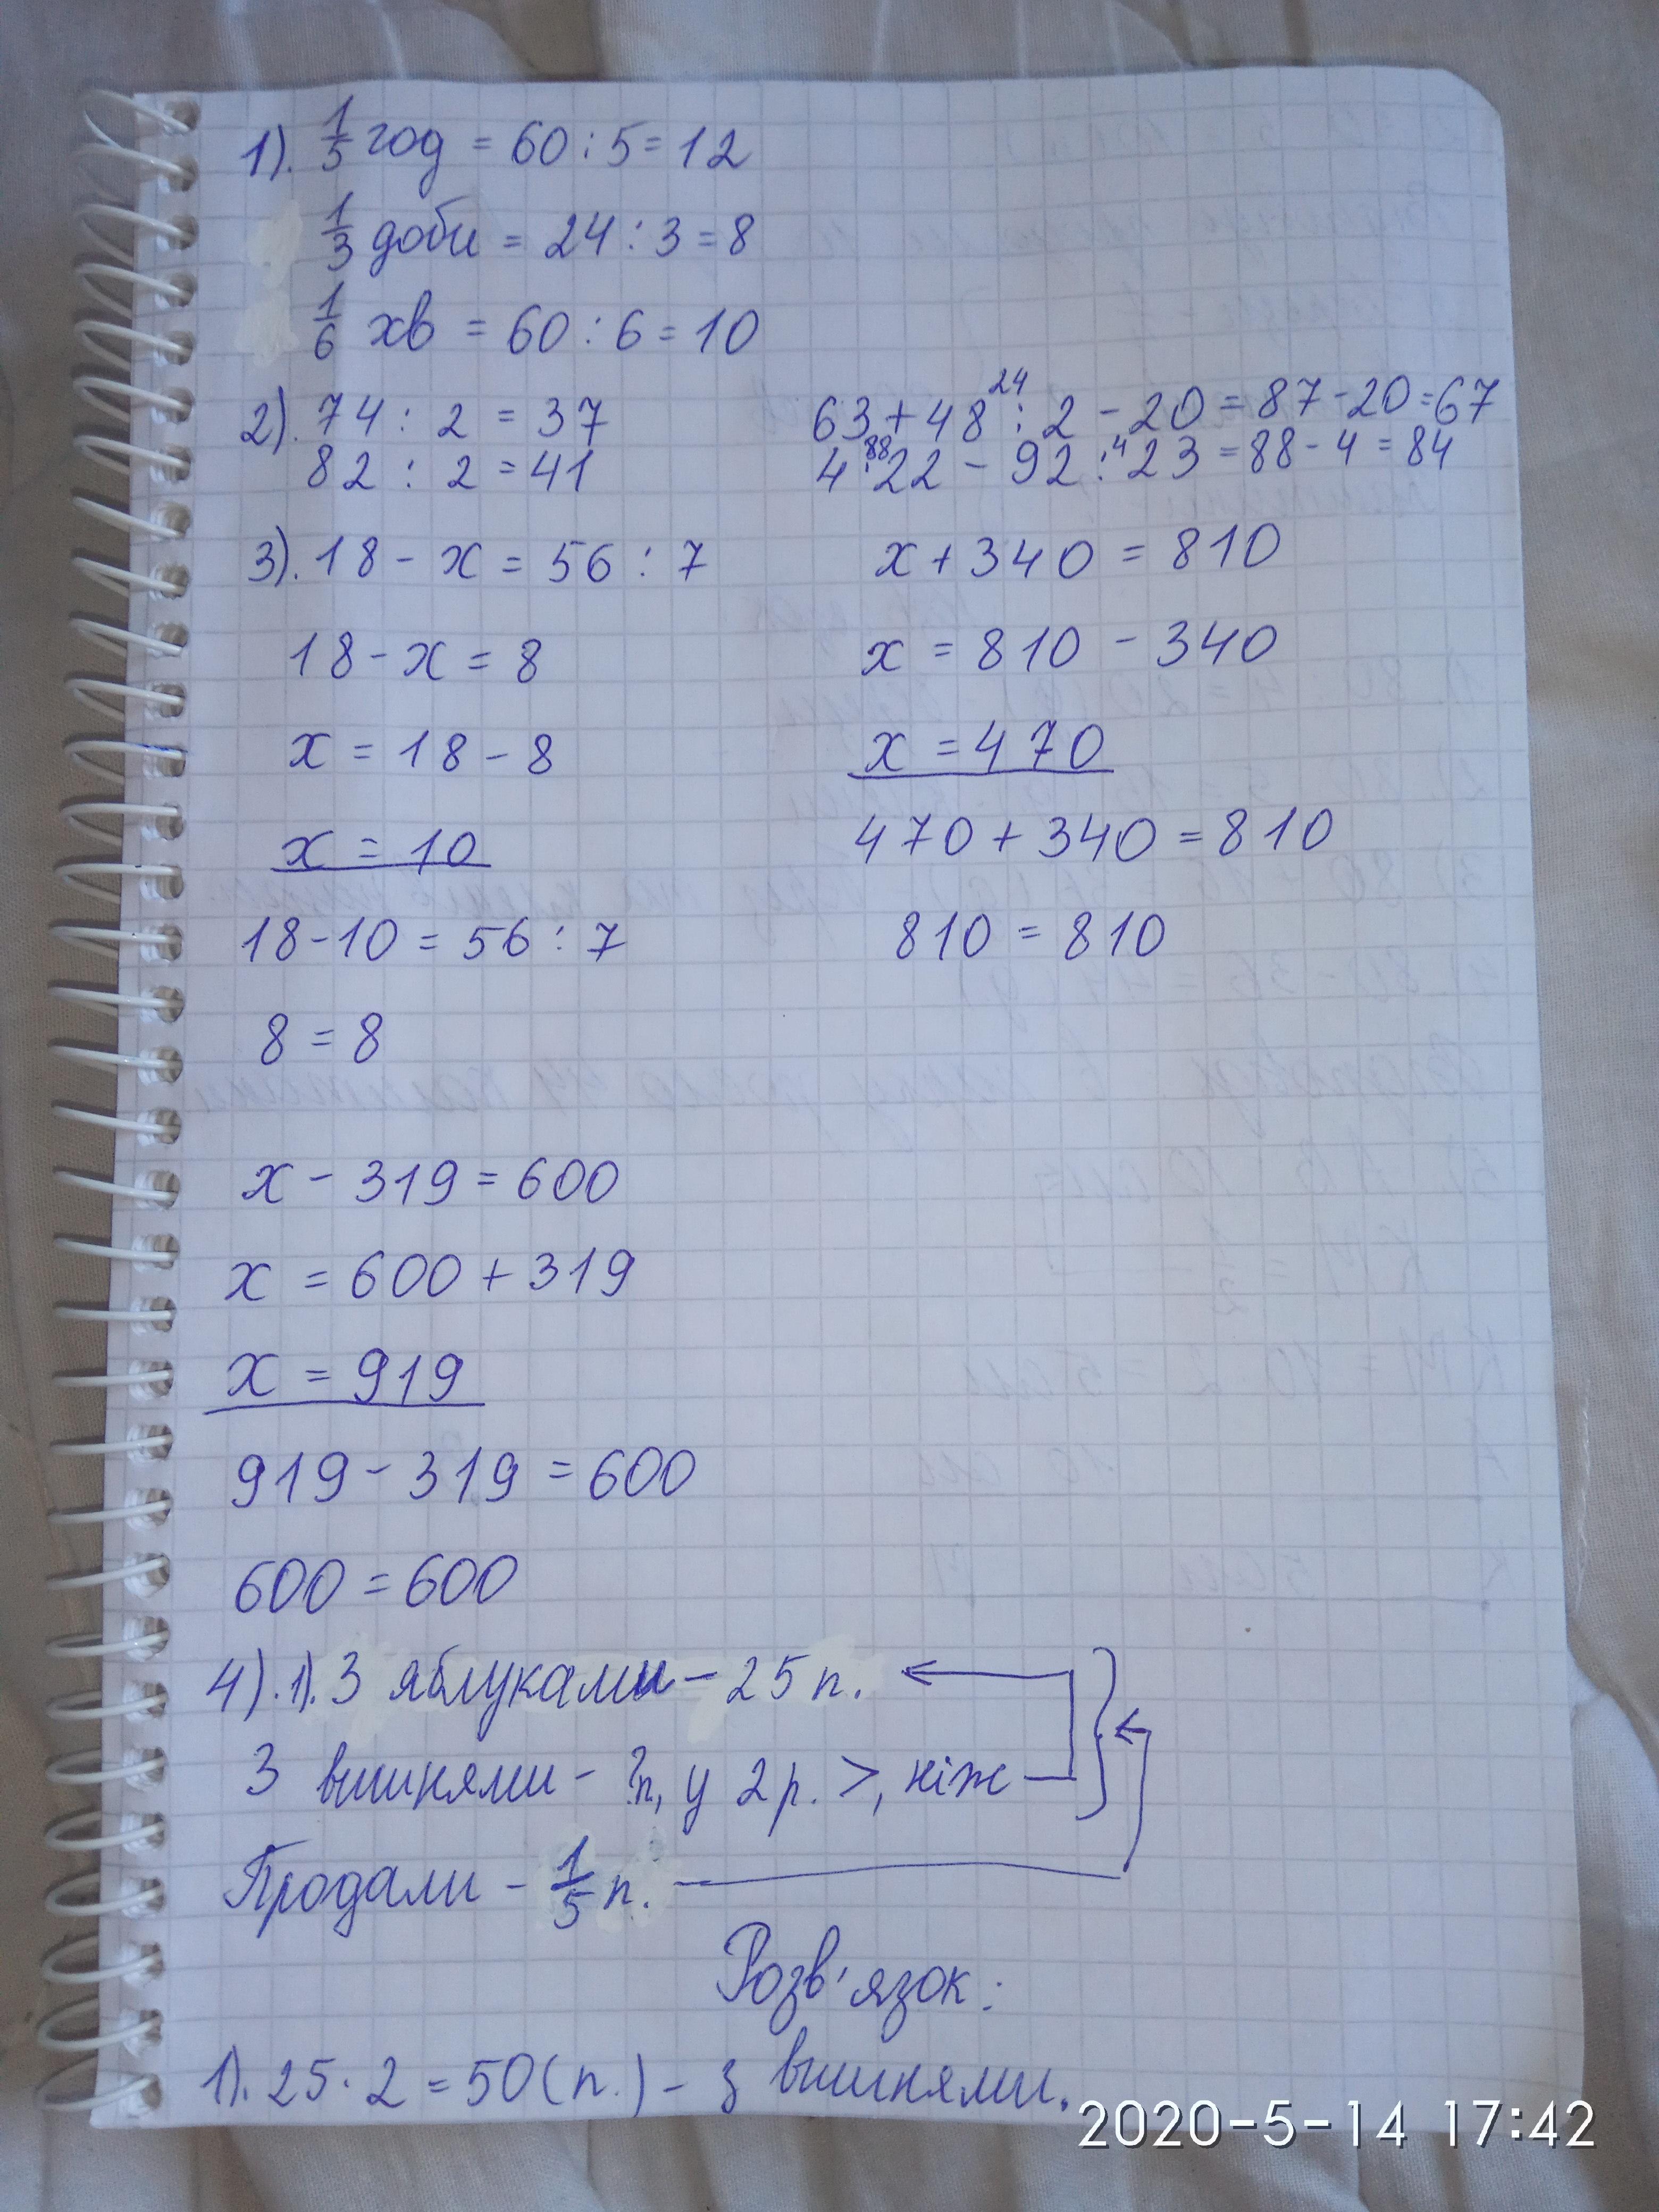 1). 1/5 год = 60 : 5 = 12
1/3 доби = 24 : 3 = 8
1/6 хв = 60 : 6 = 10
2). 74 : 2 = 37
82 : 2 = 41
24
63 + 48 : 2 - 20 = 87 - 20 = 67
88 4
4 · 22 - 92 : 23 = 88 - 4 = 84
3). 18 - х = 56 : 7
18 - х = 8
х = 18 - 8
х = 10
18 - 10 = 56 : 7
8 = 8
х + 340 = 810
х = 810 - 340
х = 470
470 + 340 = 810
810 = 810
х - 319 = 600
х = 600 + 319
х = 919
919 - 319 = 600
600 = 600
4). 1). З яблуками - 25 п.
З вишнями - ? п, у 2 р. >, ніж
Продали - 1/5 п.
Розв'язок:
1). 25 · 2 = 50 (п.) - з вишнями.
2020-5-14 17:42